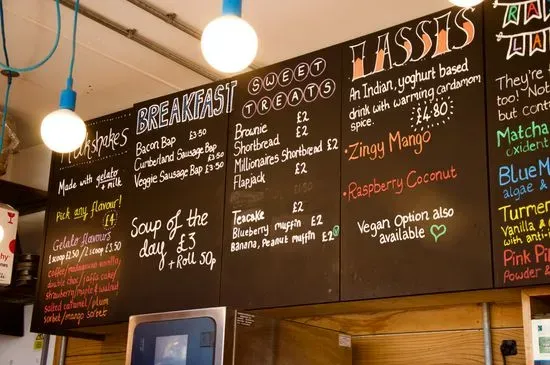 Milkshakes
Made with gelato
+ milk
Pick any flavour!
£4
Gelato flavours
1 scoop £1.50 / 2 scoop £2.50
coffee/madagascan vanilla
double choc/jaffa cake/
strawberry/maple & walnut
salted caramel/plum
sorbet/mango sorbet
BREAKFAST
Bacon Bap £3.50
Cumberland Sausage Bap
Veggie Sausage Bap £3.50
Soup of the
day £3
+ Roll 50p
SWEET
TREATS
Brownie £2
Shortbread £2
Millionaires Shortbread £2
Flapjack £2
Teacake £2
Blueberry muffin £2
Banana, Peanut muffin £2
LASSIS
An Indian, yoghurt based
drink with warming cardamom
spice. £4.80
• Zingy Mango
• Raspberry Coconut
Vegan Option also
available
RA
LA
They're
too! No
but con
Matcha
oxident
Blue M
algae &
Turmer
Vanilla &
with anti-
Pink Pi
Powder